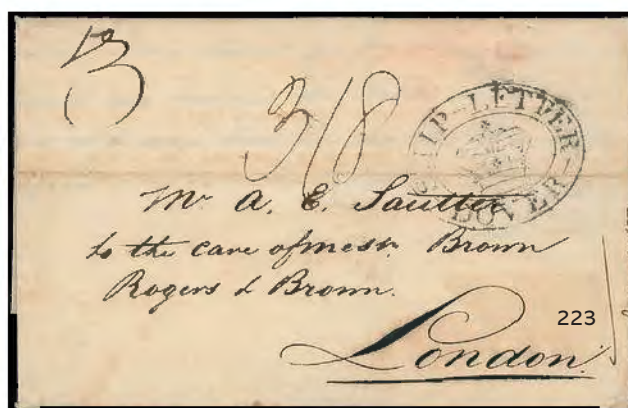 3
3/8
SHIP-LETTER-
DOVER
Mr A. E. Sautter
to the care of messrs. Brown
Rogers & Brown.
223
London